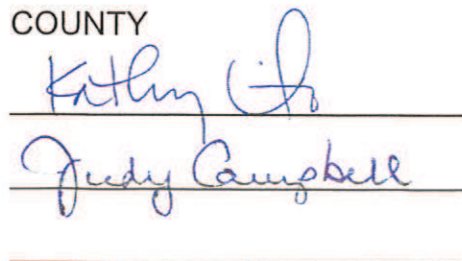 COUNTY
Kathy
Judy Campbell